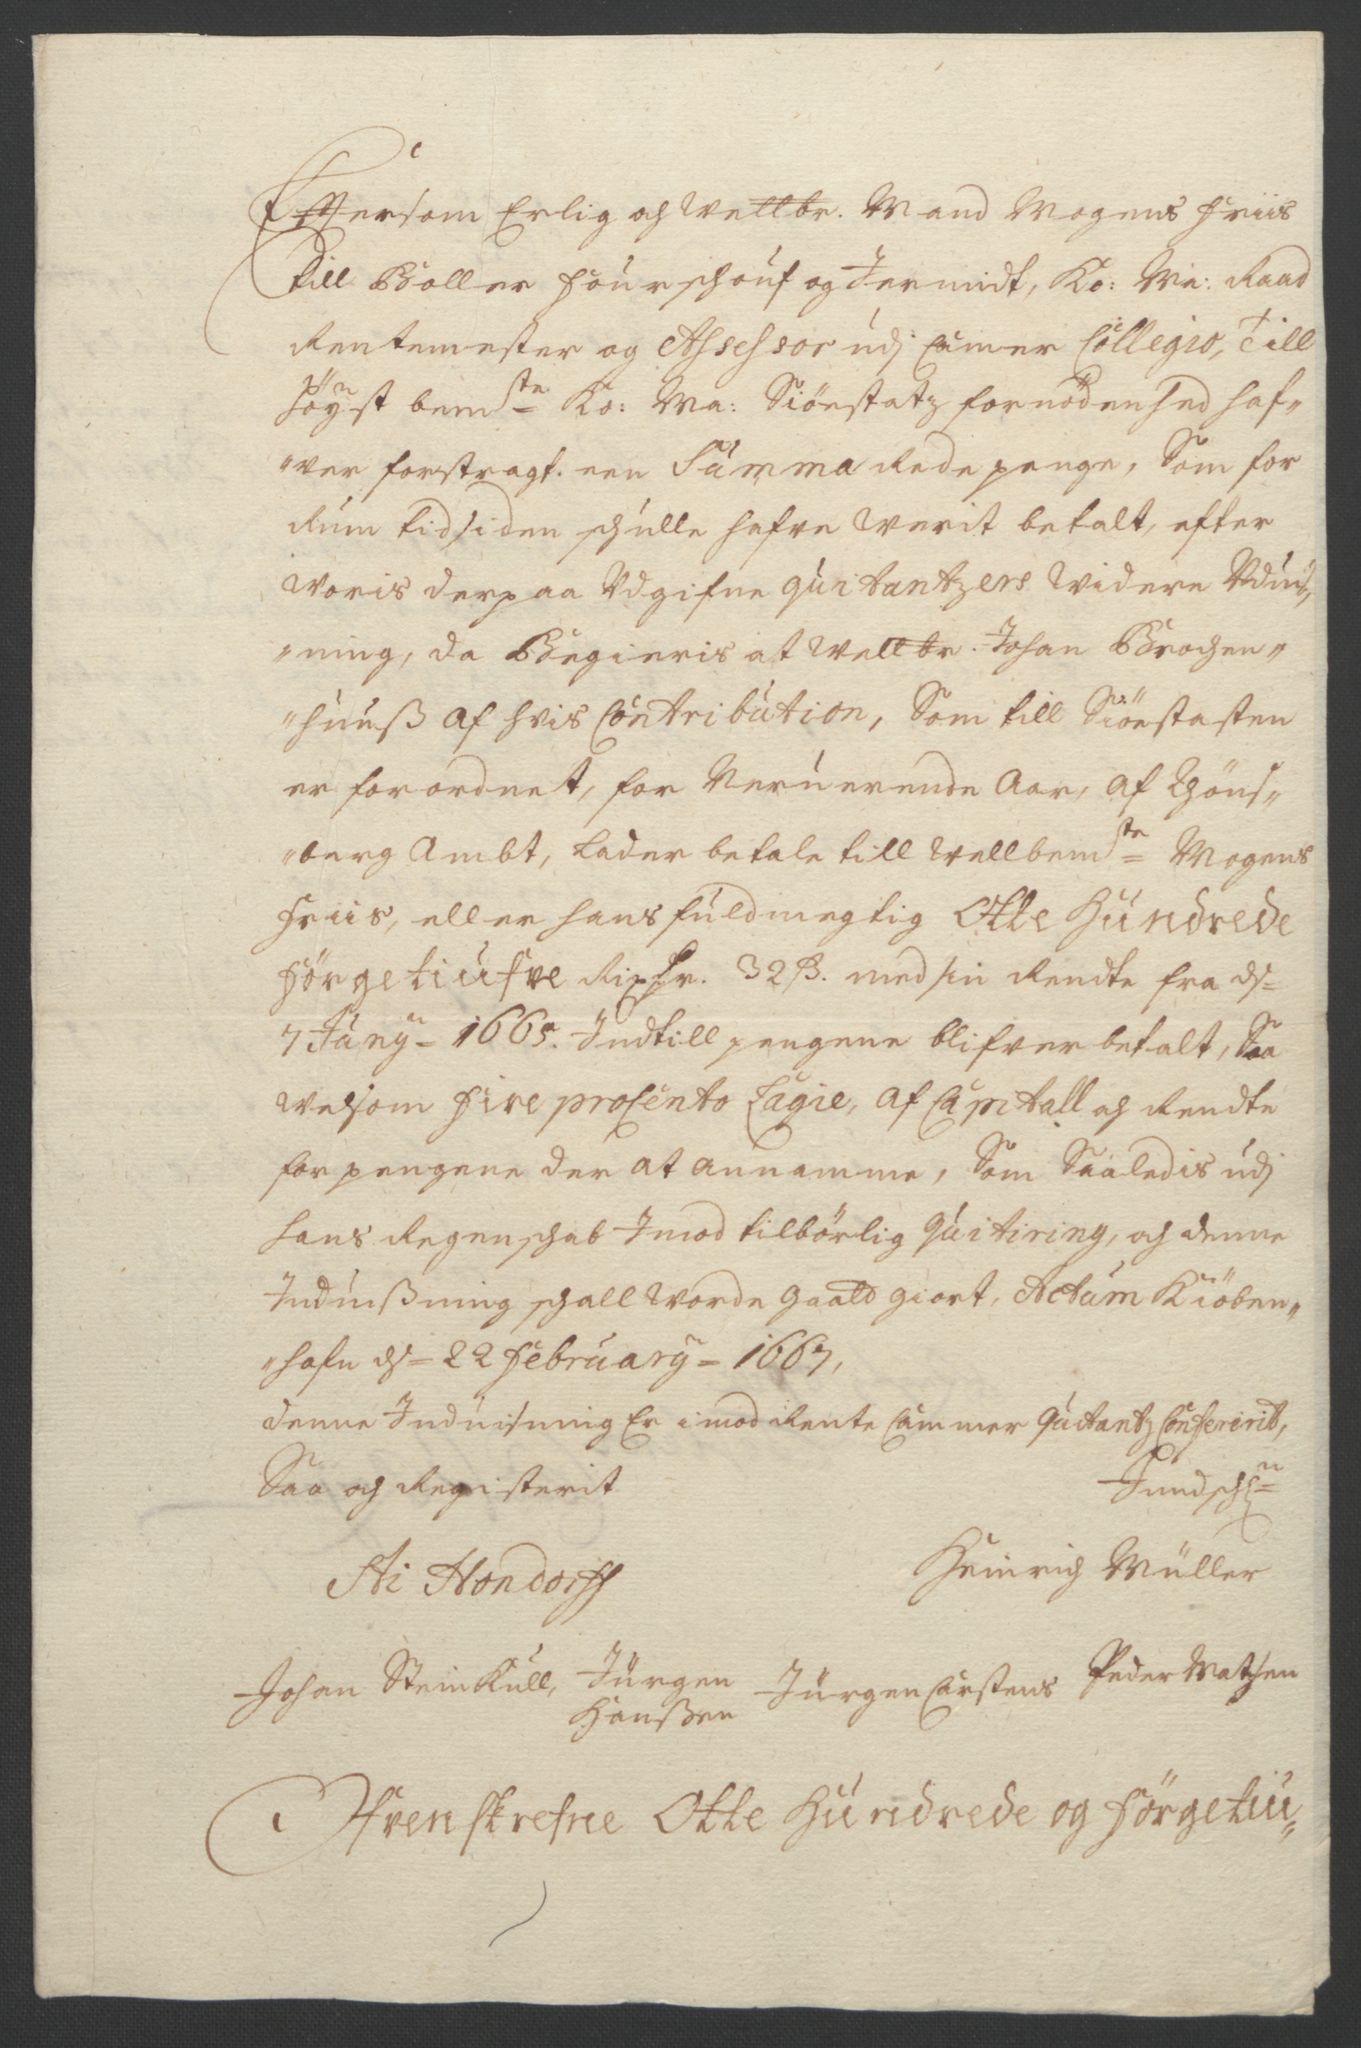 Eftersom Erlig och Wellbr. Mand Mogens Friis
till Boller Fourschouf og Jermidt, Ko: Ma: Raad
Rentemester og Assessor udj Camer Collegio, Till
Høyst bem<sup>te</sup> Ko: Ma: Siöestatz fornödenhed haf„
„ver forstragt. een Summa Rede penge, Som for
Rum tid siden schulle hafve Werit betalt, efter
Woris derpaa Udgifne quitantzers Widere Udvis„
„ning, da Begieris at Wellbr. Johan Brochen„
„huuß af hvis Contribution, Som till Siöestaten
er forordnet, for Nerverende Aar, af Thöns„
„berg Ambt, Lader betale till Wellbem<sup>te</sup> Mogens
Friis, eller hans fuldmegtig Otte Hundrede
Förgetiufve Rixdr. 32 ß. med sin Rendte fra d.
7 Januy 1665. Indtill pengene blifver betalt, Saa
Welsom Fire procento Lagie, af Capitall och Rendte
for pengene der at annamme, Som Saaledis udj
hans Regenschab Imod tilbörlig Quitiring, och denne
Induißning schall Worde gaatd giort, Actum Kiöben„
„hafn d. 22 February 1667,
denne Induisning Er imod Rente Cammer Quitantz Confererit,
Saa och Registerit
Heinrich Müller
Hondorff
Johan SteinKull, Jürgen Hanßen Jürgen Carstens Peder Matzen
Ofvenskrefne Otte Hundrede og Förgetiu„